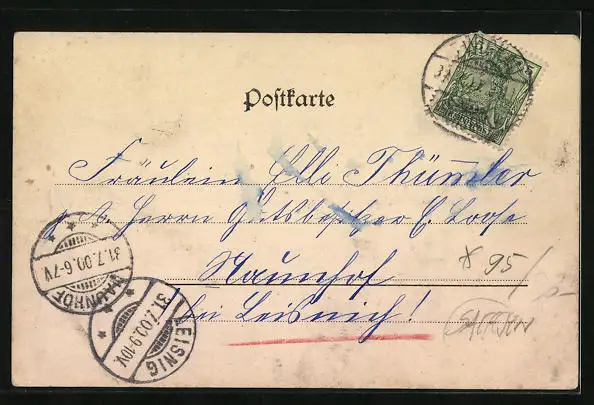 Postkarte
Fräulein Elli Thümmler
p. A. Herrn Gutsbesitzer E. Loose
Naunhof
bei Leisnig!
31.7.00.6-7V.
NAUNHOF
LEISNIG
31.7.00.9-10V.
* 95/